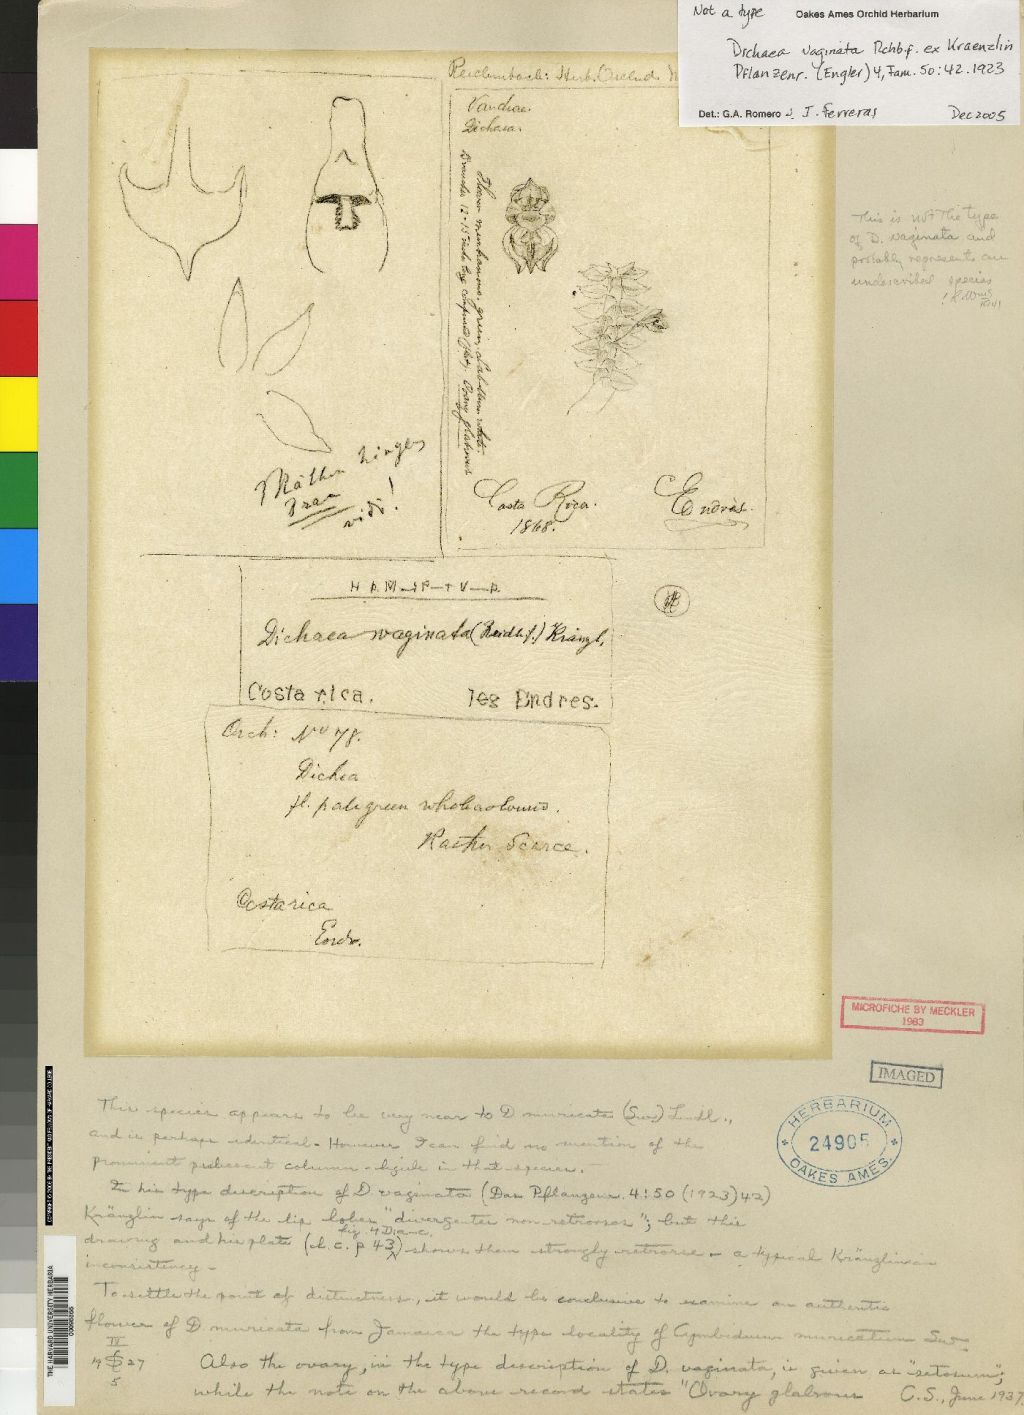 Not a type
Oakes Ames Orchid Herbarium
Dichaea vaginata Rchb.f. ex Kraenzlin
Pflanzenr. (Engler) 4, Fam. 50: 42. 1923
Det.: G.A. Romero & J. Ferreras
Dec 2005
Reichenbach: Herb. Orchid
Vandeae.
Dichaea.
Flower membranous, green, labellum white.
Branches 12-15 inches long compressed (flat). Ovary glabrous
Costa Rica.
1868.
Endrés.
This is not the type
of D. vaginata and
probably represents an
undescribed species
vidi!
Dichaea vaginata (Reichb.f.) Kränzl.
Costa rica.
leg Endres.
Orch: No 78.
Dichea
fl. pale green whole coloured.
Rather Scarce.
Costarica
Endr.
MICROFICHE BY MECKLER
1983
IMAGED
HERBARIUM
24905
OAKES AMES
This species appears to be very near to D. muricata (Sw.) Lindl.,
and is perhaps identical. However I can find no mention of the
prominent pubescent column-ligule in that species.
In his type description of D. vaginata (Das Pflanzenr. 4:50 (1923) 42)
Kränzlin says of the lip lobes "divergentes non retrorsos"; but this
drawing and his plate (l. c. p 43, fig. 4 D; a-c.) shows them strongly retrorse - a typical Kränzlinian
inconsistency.
To settle the point of distinctness, it would be conclusive to examine an authentic
flower of D. muricata from Jamaica the type locality of Cymbidium muricatum Sw.
Also the ovary, in the type description of D. vaginata, is given as "setosum";
while the note on the above record states "Ovary glabrous
C.S., June 1937.
THE HARVARD UNIVERSITY HERBARIA